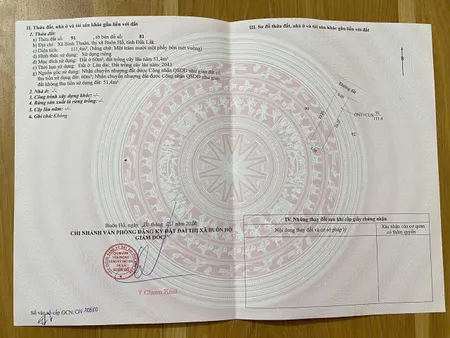 II. Thửa đất, nhà ở và tài sản khác gắn liền với đất
1. Thửa đất:
a) Thửa đất số: 91 tờ bản đồ số: 81
b) Địa chỉ: Xã Bình Thuận, thị xã Buôn Hồ, tỉnh Đắk Lắk
c) Diện tích: 111,4m², (bằng chữ: Một trăm mười một phẩy bốn mét vuông)
d) Hình thức sử dụng: Sử dụng riêng
đ) Mục đích sử dụng: Đất ở 60m², đất trồng cây lâu năm 51,4m²
e) Thời hạn sử dụng: Đất ở: Lâu dài, Đất trồng cây lâu năm: 2043
g) Nguồn gốc sử dụng: Nhận chuyển nhượng đất được Công nhận QSDĐ như giao đất có
thu tiền sử dụng đất: 60m²; Nhận chuyển nhượng đất được Công nhận QSDĐ như giao
đất không thu tiền sử dụng đất: 51,4m²
2. Nhà ở: -/-
3. Công trình xây dựng khác: -/-
4. Rừng sản xuất là rừng trồng: -/-
5. Cây lâu năm: -/-
6. Ghi chú: Không
Buôn Hồ, ngày tháng năm
CHI NHÁNH VĂN PHÒNG ĐĂNG KÝ ĐẤT ĐAI THỊ XÃ BUÔN HỒ
GIÁM ĐỐC
Y Chuôn Ksơr
Số vào sổ cấp GCN: CN
III. Sơ đồ thửa đất, nhà ở và tài sản khác gắn liền với đất
Đường
ONT+CLN 91
111.4
IV. Những thay đổi sau khi cấp giấy chứng nhận
Nội dung thay đổi và cơ sở pháp lý
Xác nhận của cơ quan
có thẩm quyền